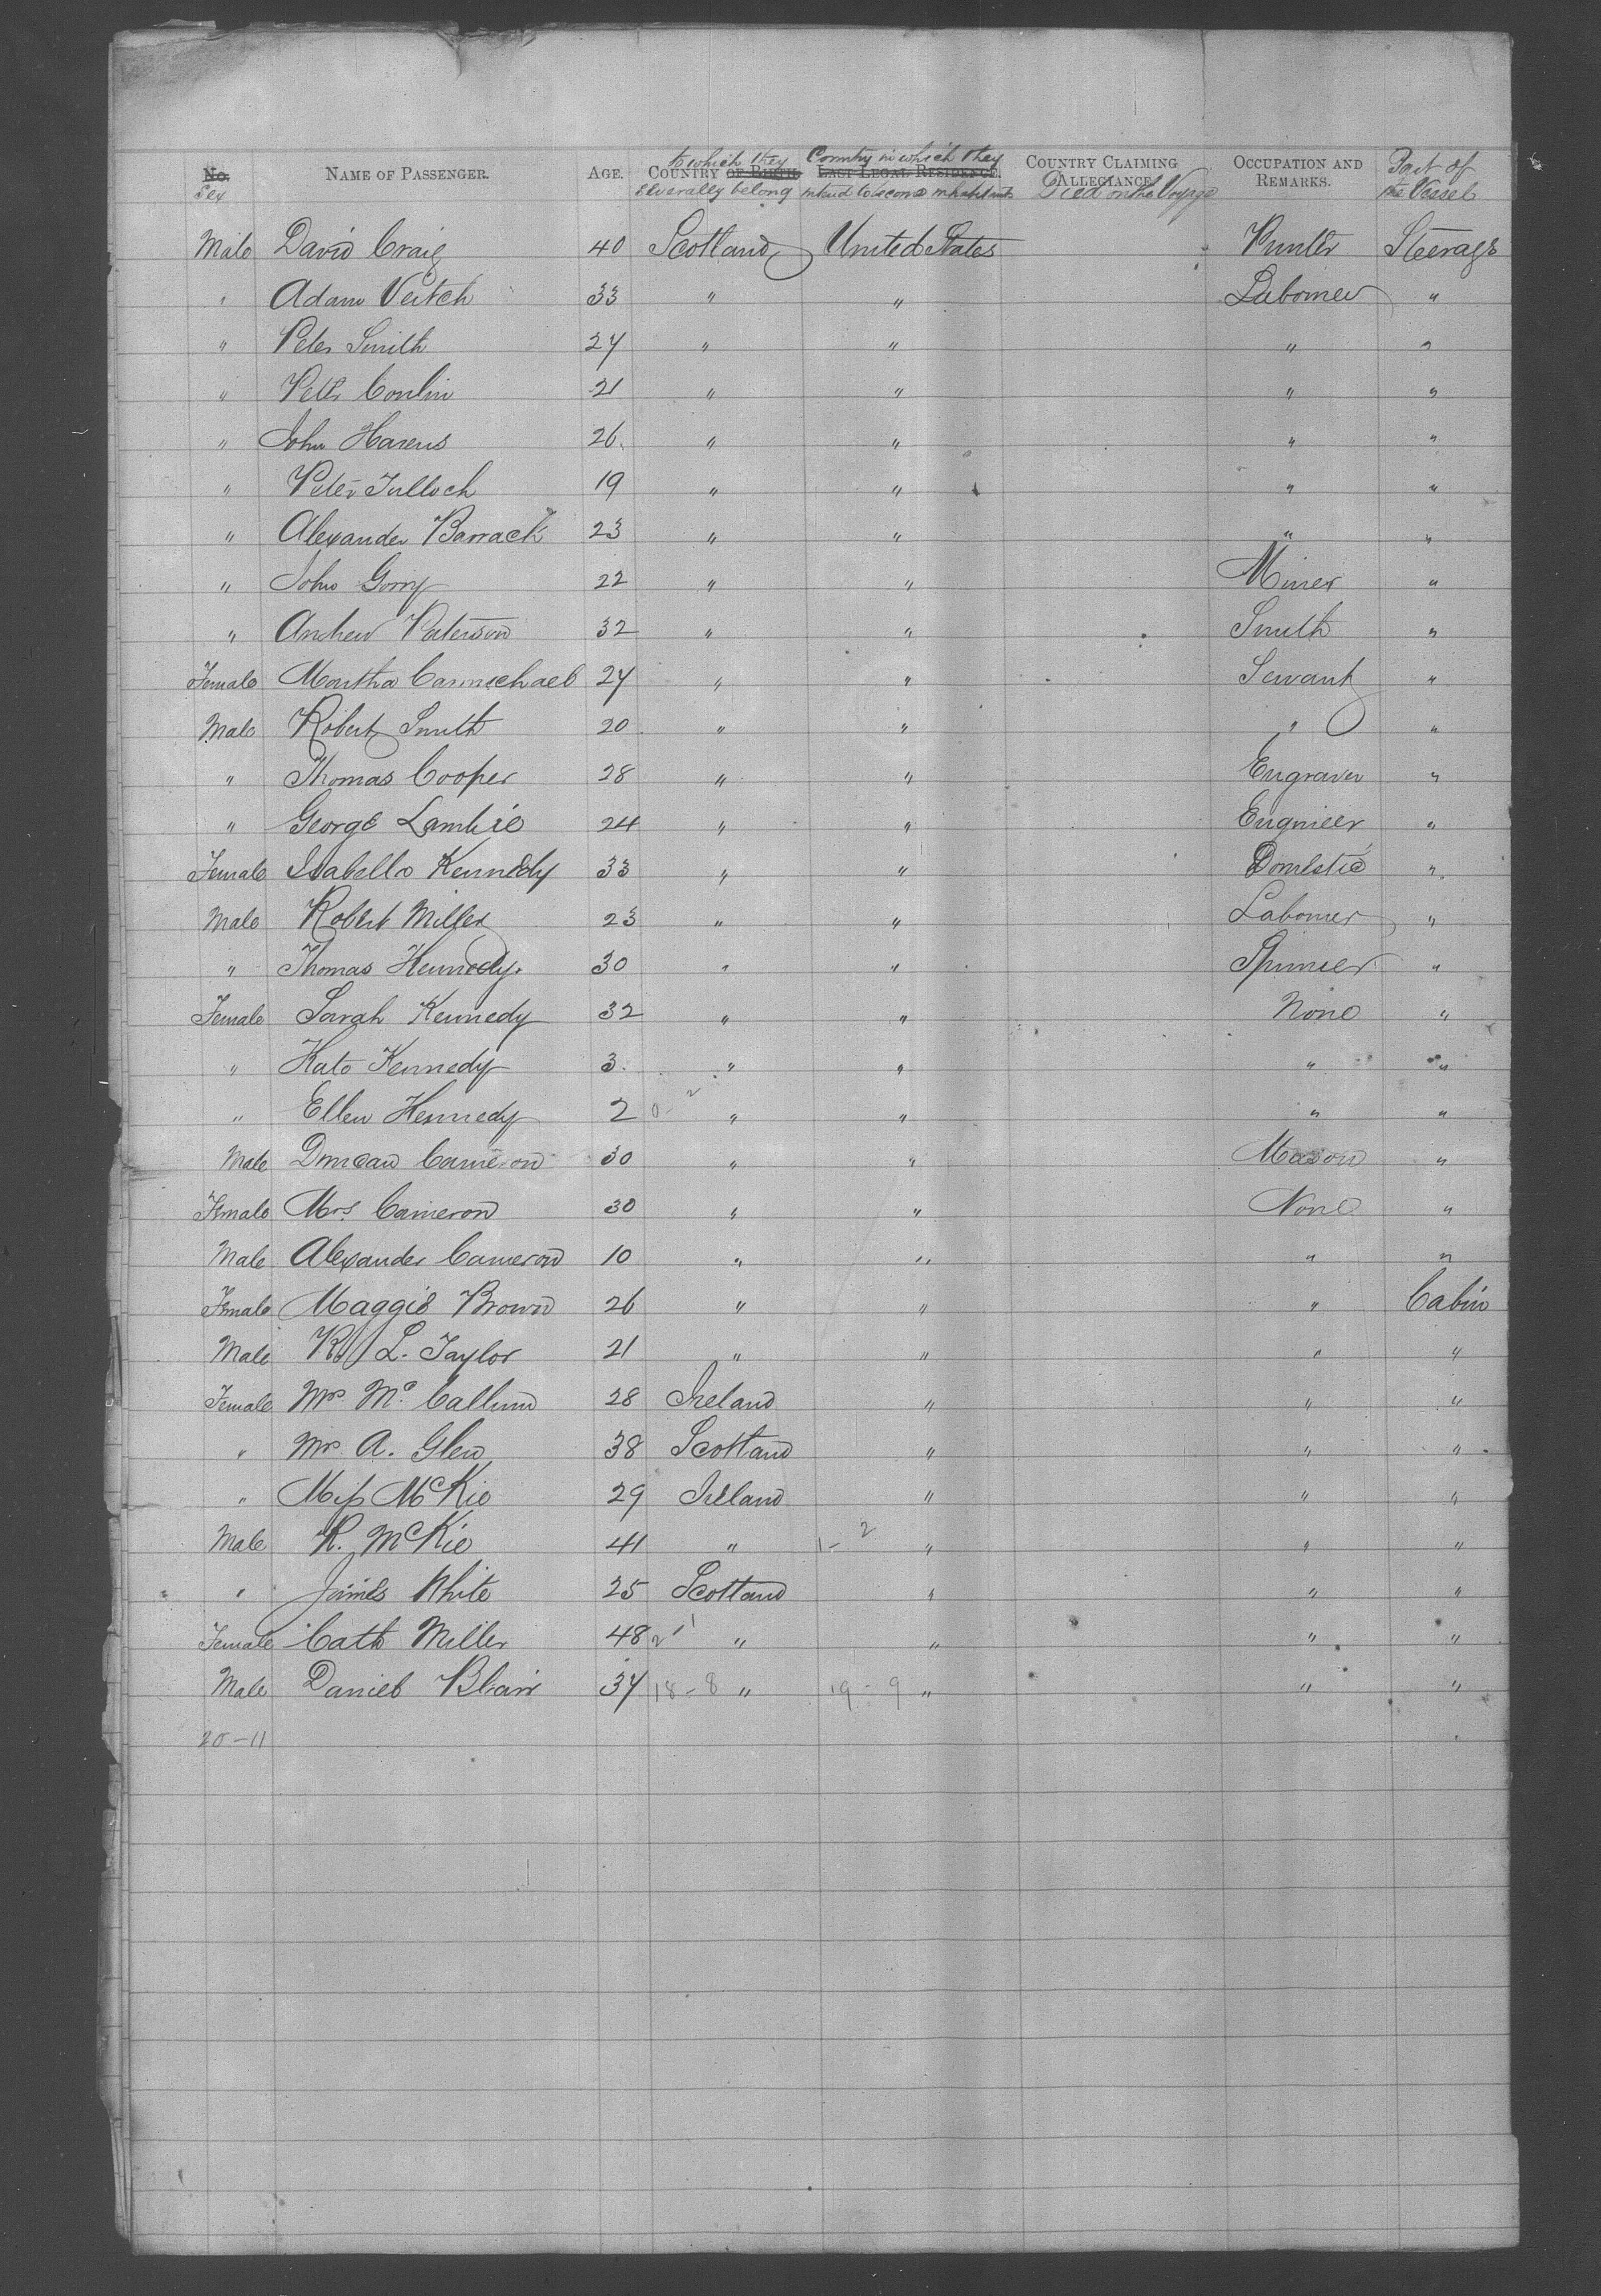 No. NAME OF PASSENGER. AGE. to which they COUNTRY OF BIRTH. Country in which they LAST LEGAL RESIDENCE. COUNTRY CLAIMING ALLEGIANCE. OCCUPATION AND REMARKS. Part of
Sex severally belong intend to become inhabitants Died on the Voyage the Vessel
Male David Craig 40 Scotland United States Printer Steerage
" Adam Veitch 33 " " Labourer "
" Peter Smith 27 " " " "
" Peter Conlin 21 " " " "
" John 26 " " " "
" Peter Tulloch 19 " " " "
" Alexander Barrack 23 " " " "
" John Gorry 22 " " Miner "
" Andrew Paterson 32 " " Smith "
Female Martha Carmichael 27 " " Servant "
Male Robert Smith 20 " " " "
" Thomas Cooper 28 " " Engraver "
" George Lambie 24 " " Engineer "
Female Isabella Kennedy 33 " " Domestic "
Male Robert Miller 23 " " Labourer "
" Thomas Kennedy 30 " " Spinner "
Female Sarah Kennedy 32 " " None "
" Kate Kennedy 3 " " " "
" Ellen Kennedy 2 0-2 " " " "
Male Duncan Cameron 30 " " Mason "
Female Mrs. Cameron 30 " " None "
Male Alexander Cameron 10 " " " "
Female Maggie Brown 26 " " " Cabin
Male L. Taylor 21 " " " "
Female Mrs Mc Callum 28 Ireland " " "
" Mrs A. Glen 38 Scotland " " "
" Miss McKie 29 Ireland " " "
Male R. McKie 41 " 1-2 " " "
" James White 25 Scotland " " "
Female Cath Miller 48 2 1 " " " "
Male Daniel Blair 37 18-8 " 19-9 " " "
20-11